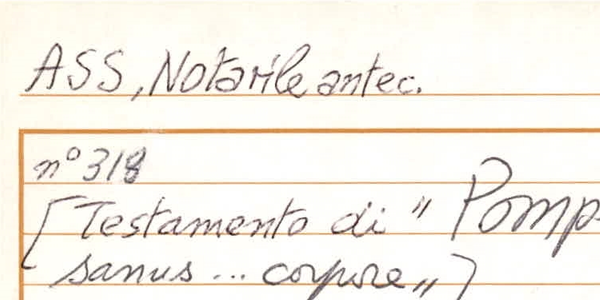 ASS, Notarile antec.
n° 318
[Testamento di " Pomp
sanus ... corpore „]